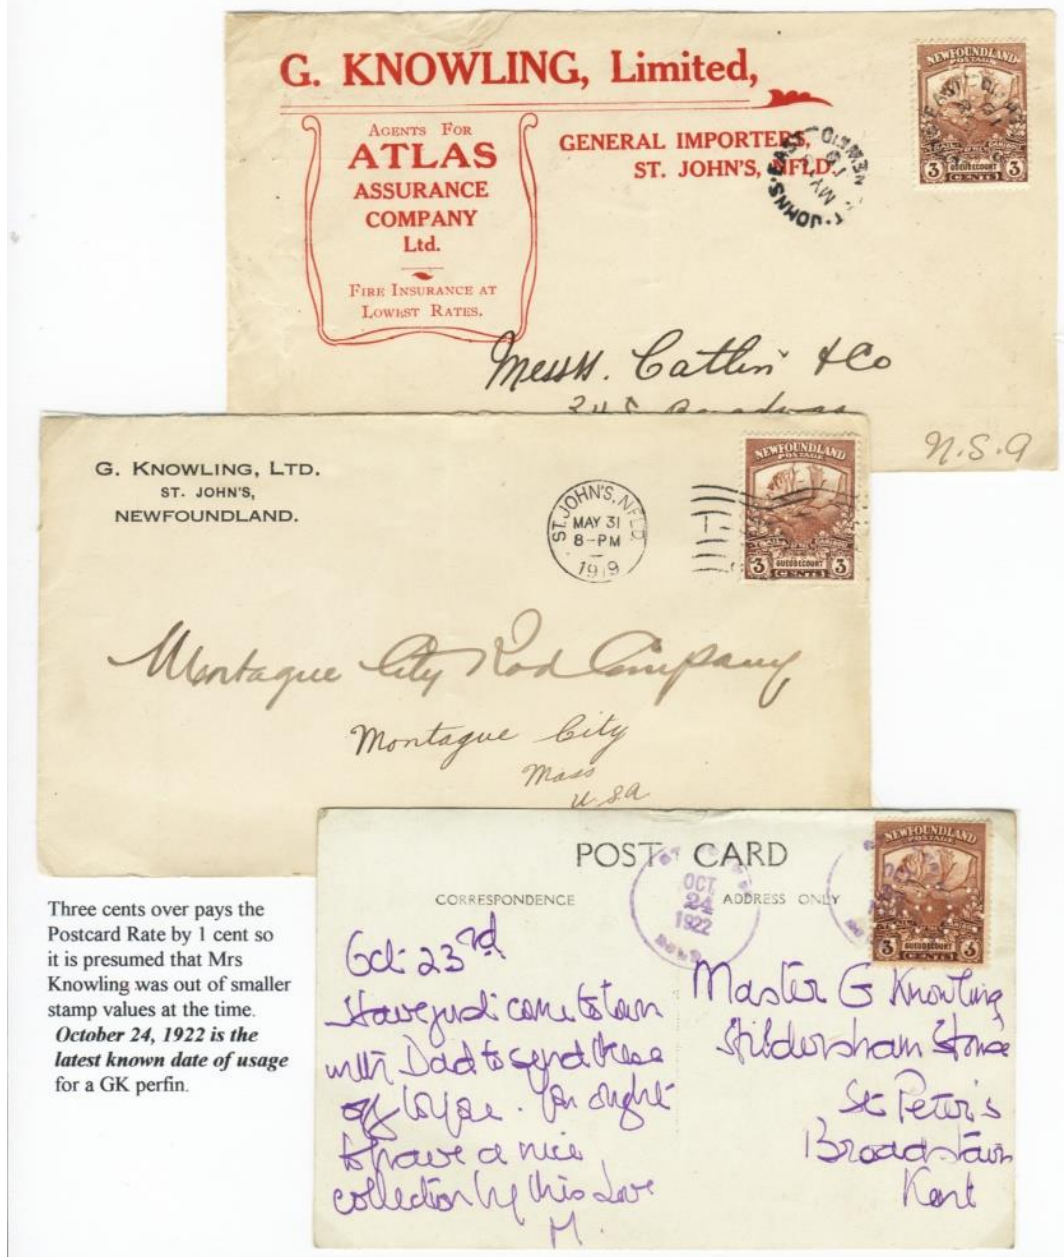 G. KNOWLING, Limited,
AGENTS FOR
ATLAS
ASSURANCE
COMPANY
Ltd.
FIRE INSURANCE AT
LOWEST RATES.
GENERAL IMPORTERS,
ST. JOHN'S, NFLD.
NEWFOUNDLAND
POSTAGE
3 GUEUDECOURT 3
CENTS
Messrs. Catlin & Co
N.S.A
G. KNOWLING, LTD.
ST. JOHN'S,
NEWFOUNDLAND.
ST. JOHN'S, NFLD.
MAY 31
8-PM
1919
NEWFOUNDLAND
POSTAGE
3 GUEUDECOURT 3
CENTS
Montague City Rod Company
Montague City
Mass
U.S.A
POST CARD
CORRESPONDENCE
ADDRESS ONLY
OCT
24
1922
NEWFOUNDLAND
3 GUEUDECOURT 3
CENTS
Oct 23rd
Have just come to town
with Dad to send these
off to you. You ought
to have a nice
collection by this Love
M.
Master G Knowling
Hildersham House
St Peter's
Broadstairs
Kent
Three cents over pays the
Postcard Rate by 1 cent so
it is presumed that Mrs
Knowling was out of smaller
stamp values at the time.
October 24, 1922 is the
latest known date of usage
for a GK perfin.